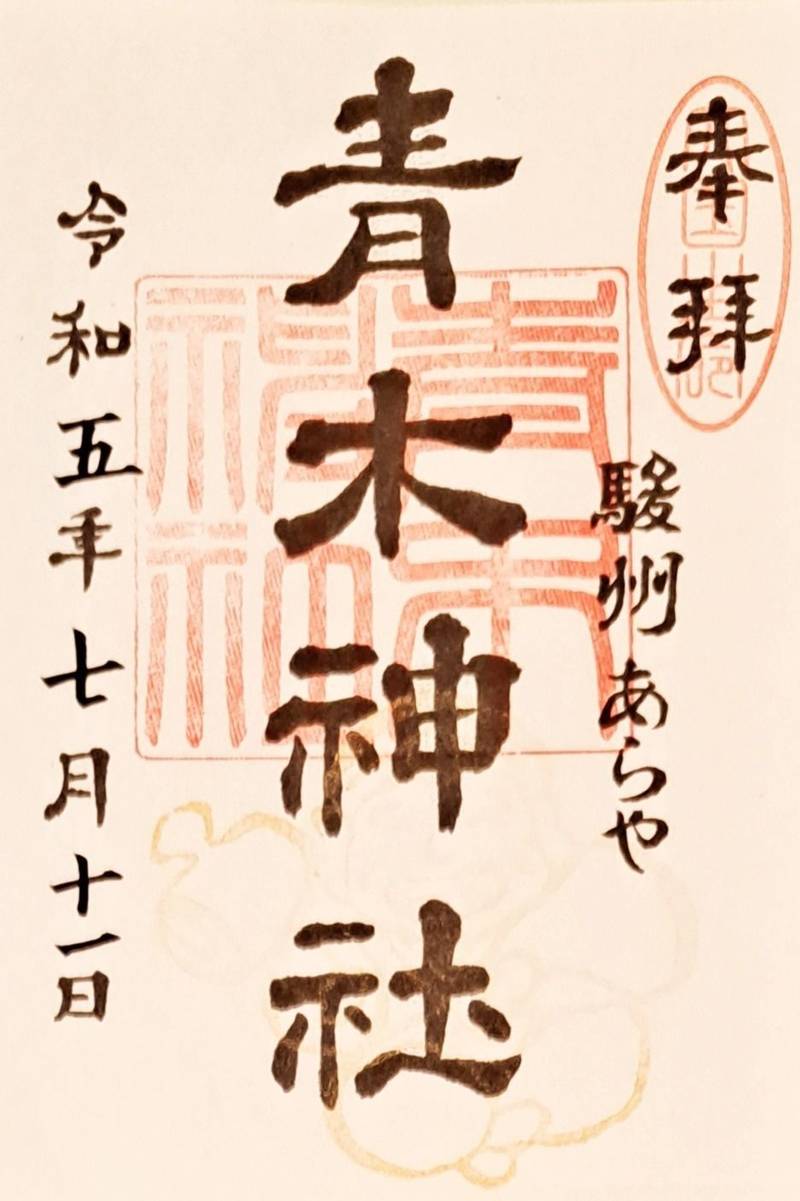 奉拝
駿州あらや
青木神社
令和五年七月十一日